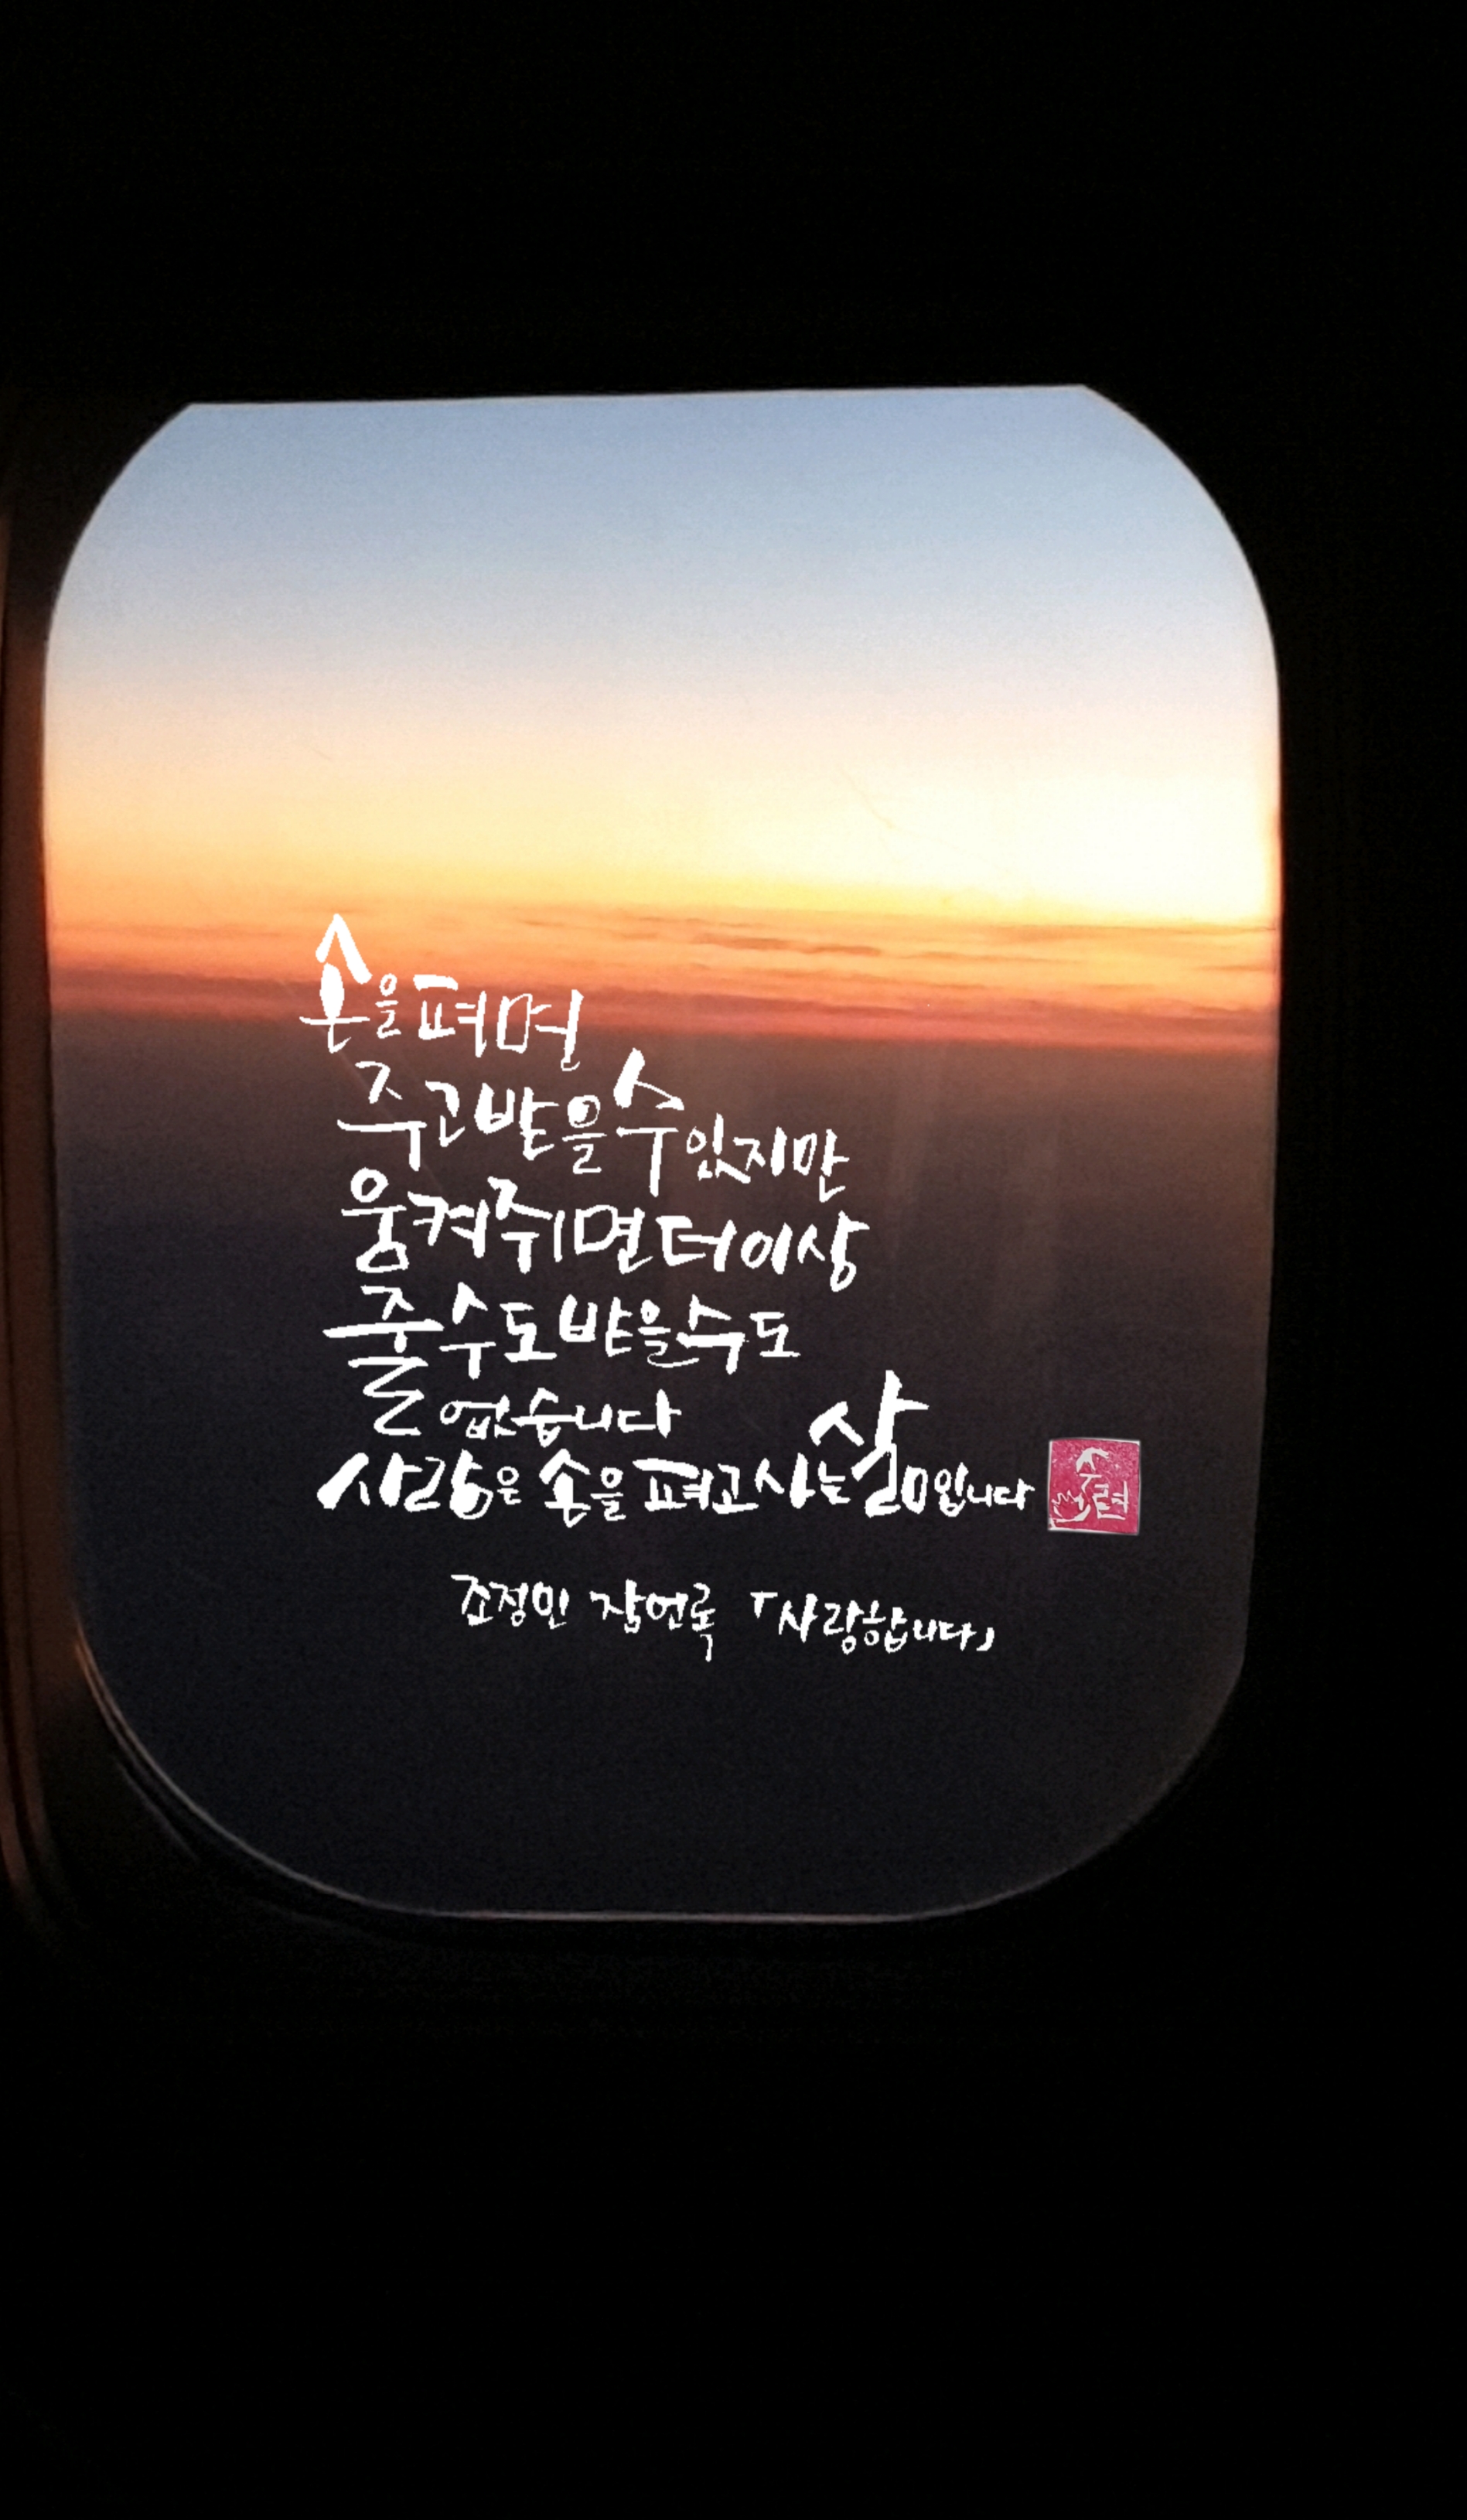 손을 펴면
주고 받을 수 있지만
움켜쥐면 더이상
줄 수도 받을 수도
없습니다
사랑은 손을 펴고 사는 삶입니다
조정민 잠언록 「사랑합니다」